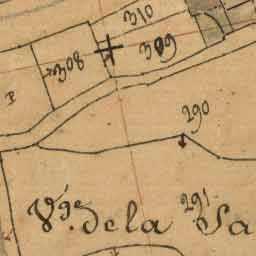 310
308
309
290
291
V.ge de la Sa